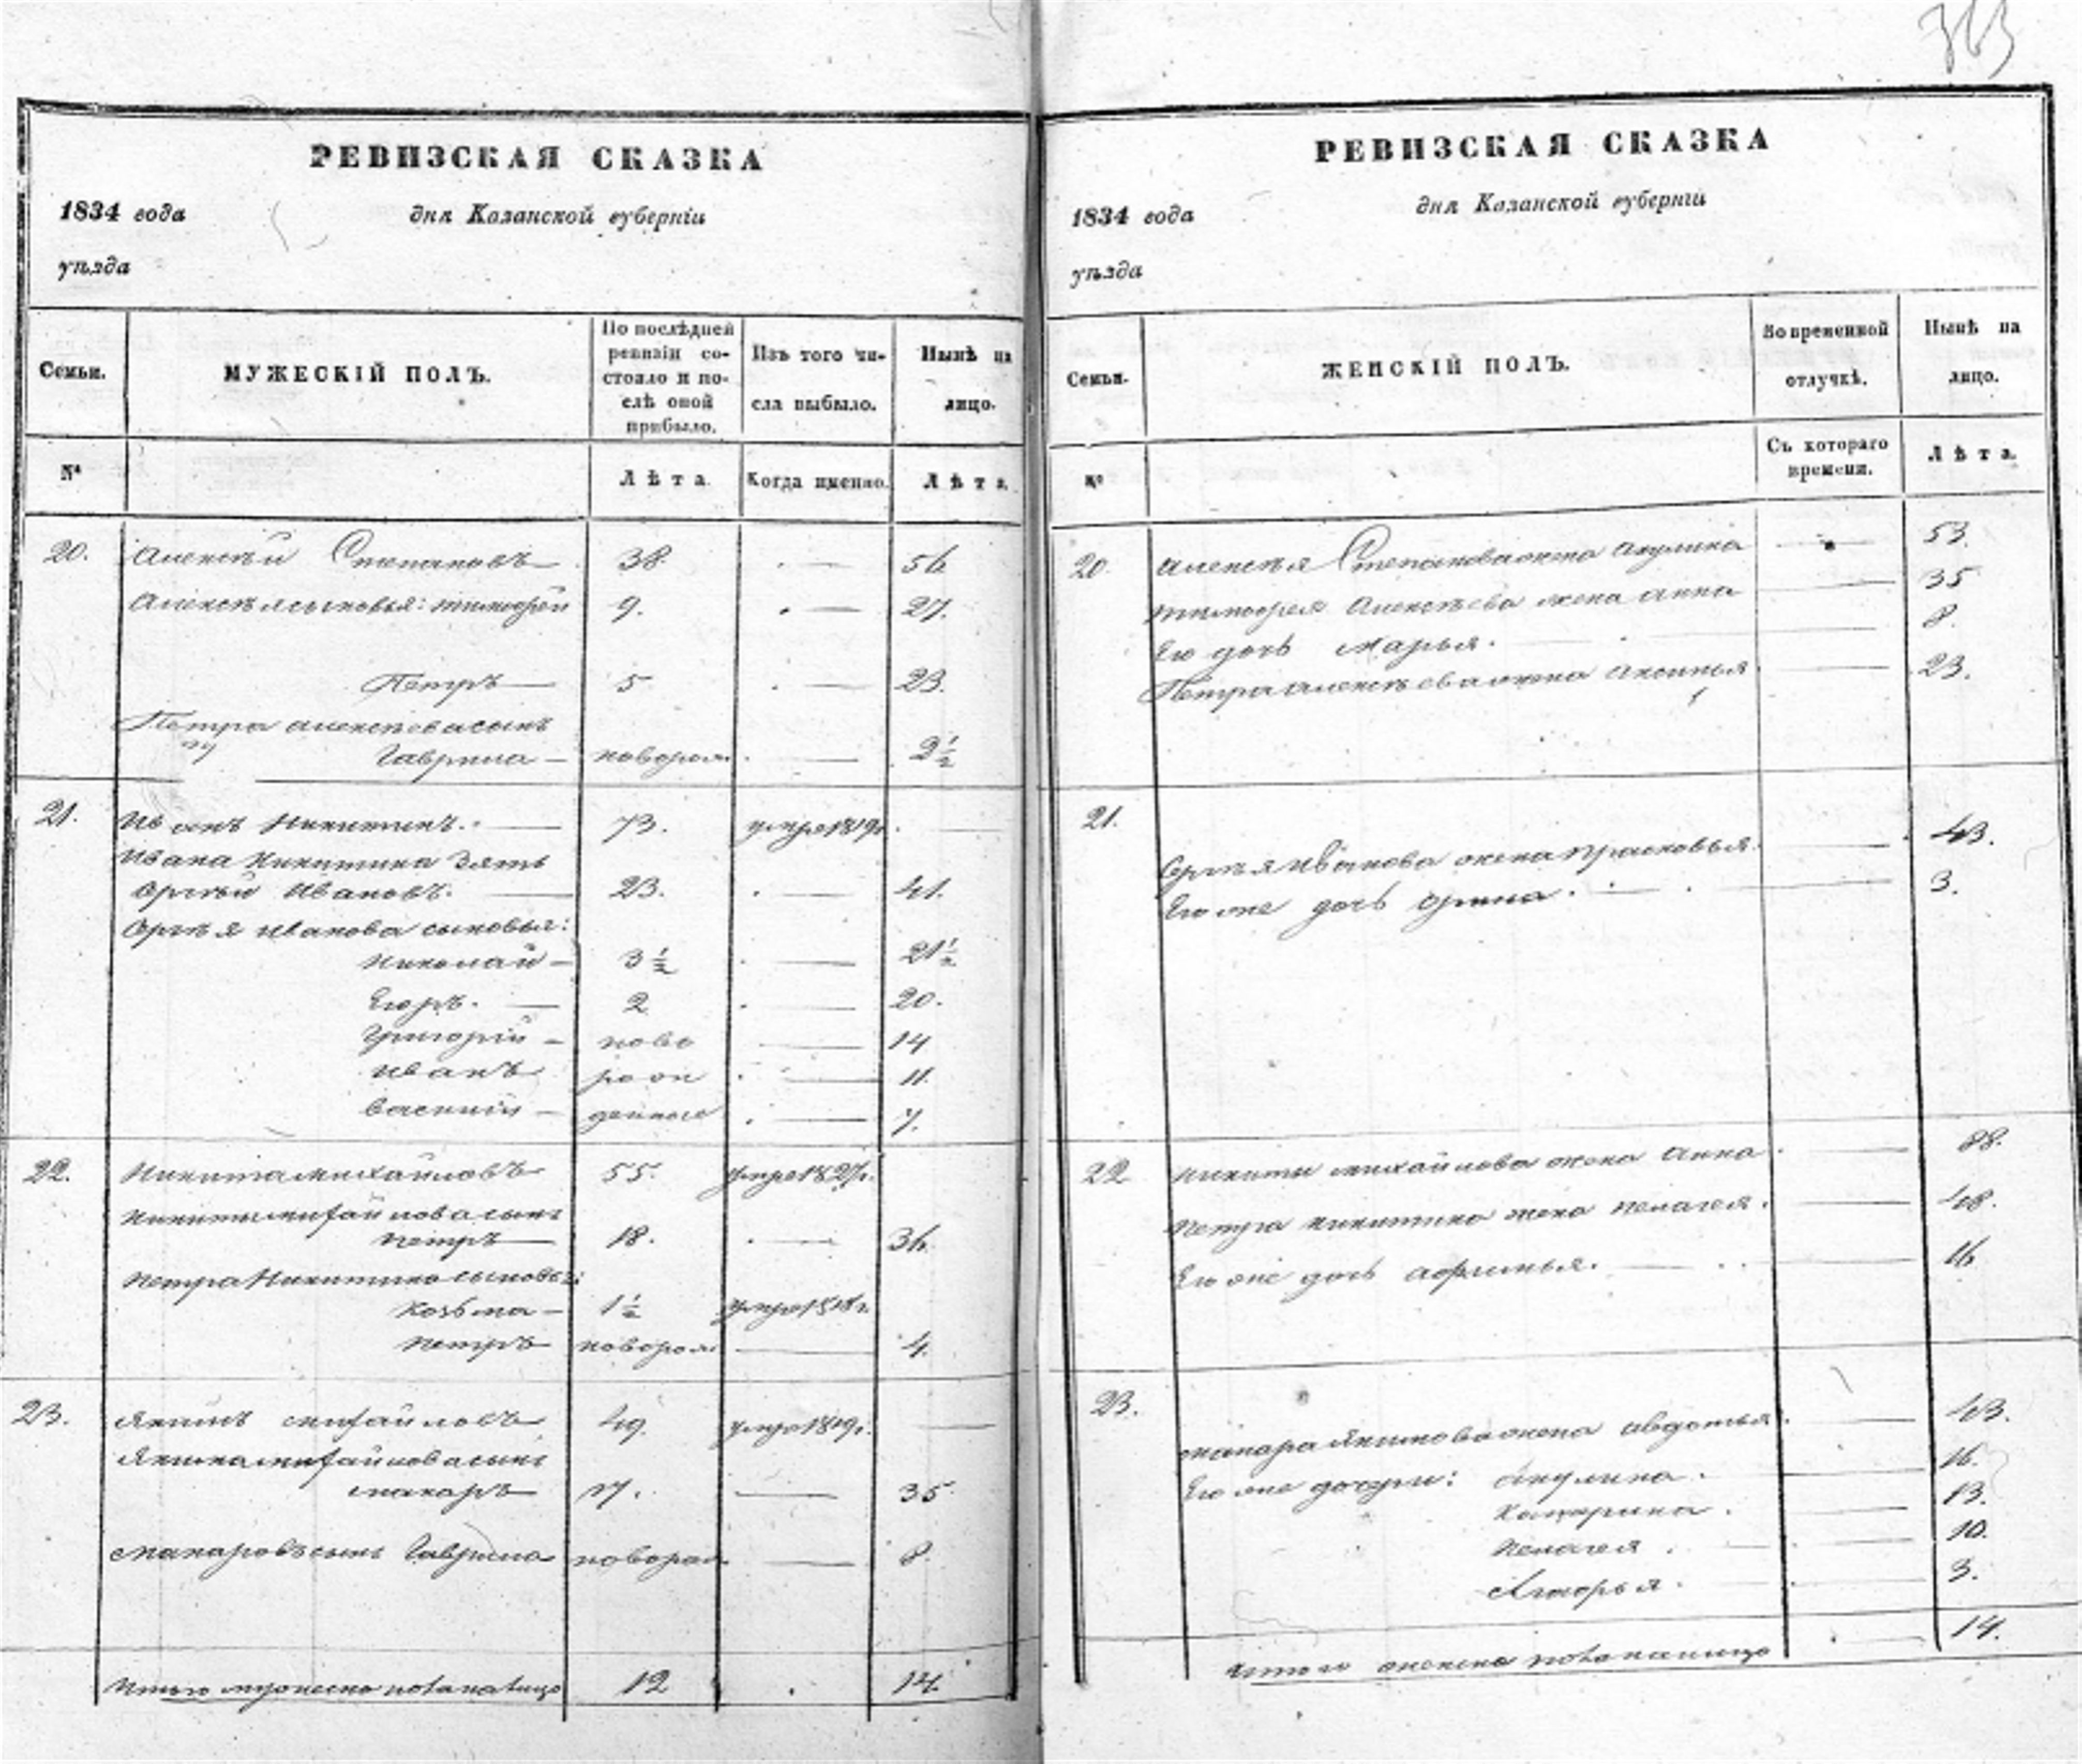 363
РЕВИЗСКАЯ СКАЗКА
1834 года дня Казанской губерніи
уѣзда
Семьи. МУЖЕСКІЙ ПОЛЪ. По послѣдней ревизіи состояло и послѣ оной прибыло. Изъ того числа выбыло. Нынѣ на лицо.
№ Лѣта. Когда именно. Лѣта.
20. Алексѣй Степановъ 38. 56
Алексѣя сыновья: тимофей 9. 27.
Петръ 5 23.
Петра алексѣева сынъ
Гаврила новорож. 2½
21. Иванъ Никитинъ. 73. умре 1819г.
Ивана Никитина Зять
Сергѣй Ивановъ. 23. 41.
Сергѣя Иванова сыновья:
Николай 3½ 21½
Егоръ. 2 20.
Григорій ново 14
Иванъ рож 11.
василій денные 7.
22. Никита михайловъ 55. умре 1827г.
Никиты михайлова сынъ
петръ 18. 36.
петра Никитина сыновья:
козьма 1½ умре 1818г.
петръ новорож 4.
23. Якимъ михайловъ 49. умре 1819г.
Якима михайлова сынъ
макаръ 17. 35
макаровъ сынъ Гаврила новорож 8.
Итого мужеска пола на лицо 12 14.
РЕВИЗСКАЯ СКАЗКА
1834 года дня Казанской губерніи
уѣзда
Семьи. ЖЕНСКІЙ ПОЛЪ. Во временной отлучкѣ. Нынѣ на лицо.
№ Съ котораго времени. Лѣта.
20. алексѣя Степанова жена Акулина 53.
тимофея Алексѣева жена анна 35
Его дочь Марья. 8.
Петра алексѣева жена аксинья 23.
21.
Сергѣя Иванова жена прасковья 43.
Его же дочь Орина. 3.
22 никиты михайлова жена Анна 88.
петра никитина жена пелагея. 48.
Его же дочь афимья. 16
23.
макара Якимова жена авдотья 43.
Его же дочери: акулина. 16.
Катерина. 13.
пелагея. 10.
Марья. 3.
Итого женска пола на лицо 14.